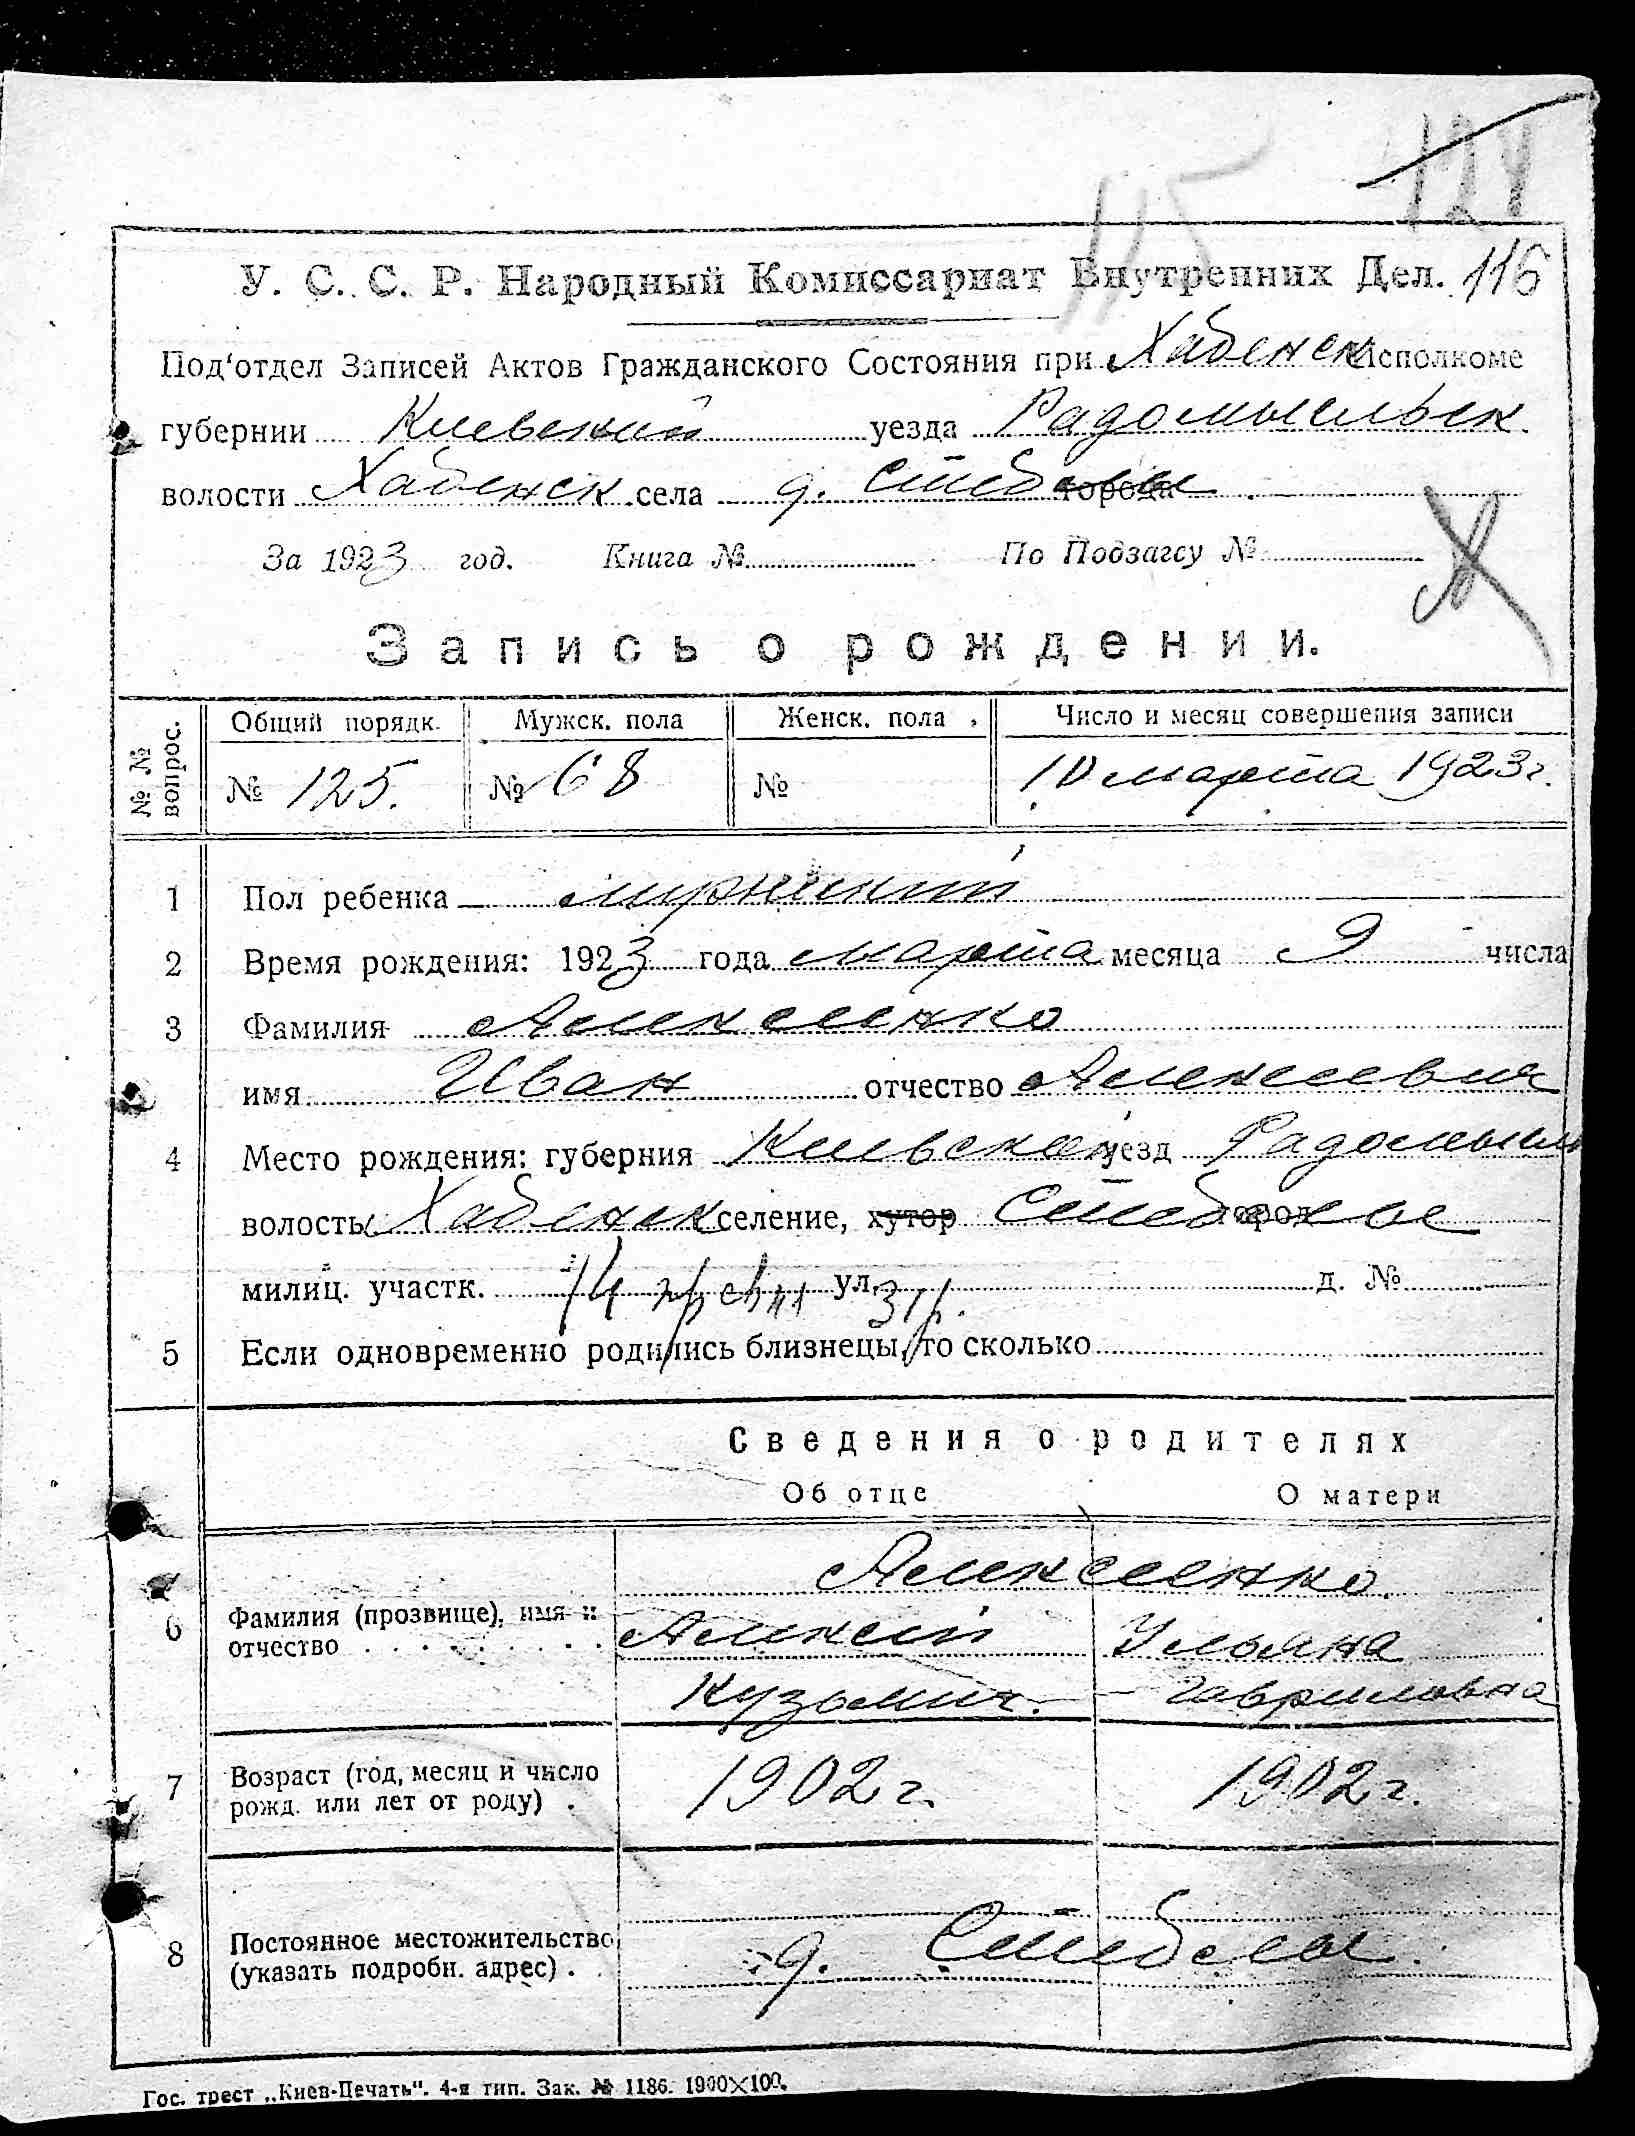 124
115
У. С. С. Р. Народный Комиссариат Внутренних Дел. 116
Под'отдел Записей Актов Гражданского Состояния при Хабенск Исполкоме
губернии Киевский уезда Радомысльск
волости Хабенск села д. Стебелы города
За 1923 год. Книга № По Подзагсу №
Запись о рождении.
№ № вопрос. Общий порядк. Мужск. пола Женск. пола Число и месяц совершения записи
№ 125. № 68 № 10 марта 1923 г.
1 Пол ребенка мужеский
2 Время рождения: 1923 года марта месяца 9 числа
3 Фамилия Алексеенко
имя Иван отчество Алексеевич
4 Место рождения: губерния Киевская уезд Радомысл
волость Хабенск селение, хутор город
милиц. участк. ул. д. №
5 Если одновременно родились близнецы, то сколько
Сведения о родителях
Об отце О матери
Алексеенко
6 Фамилия (прозвище), имя и отчество Алексей Ульяна
Кузьмич. Гавриловна
7 Возраст (год, месяц и число рожд. или лет от роду) 1902 г. 1902 г.
8 Постоянное местожительство (указать подробн. адрес) д. Стебелы.
Гос. трест „Киев-Печать". 4-я тип. Зак. № 1186. 1900×100.